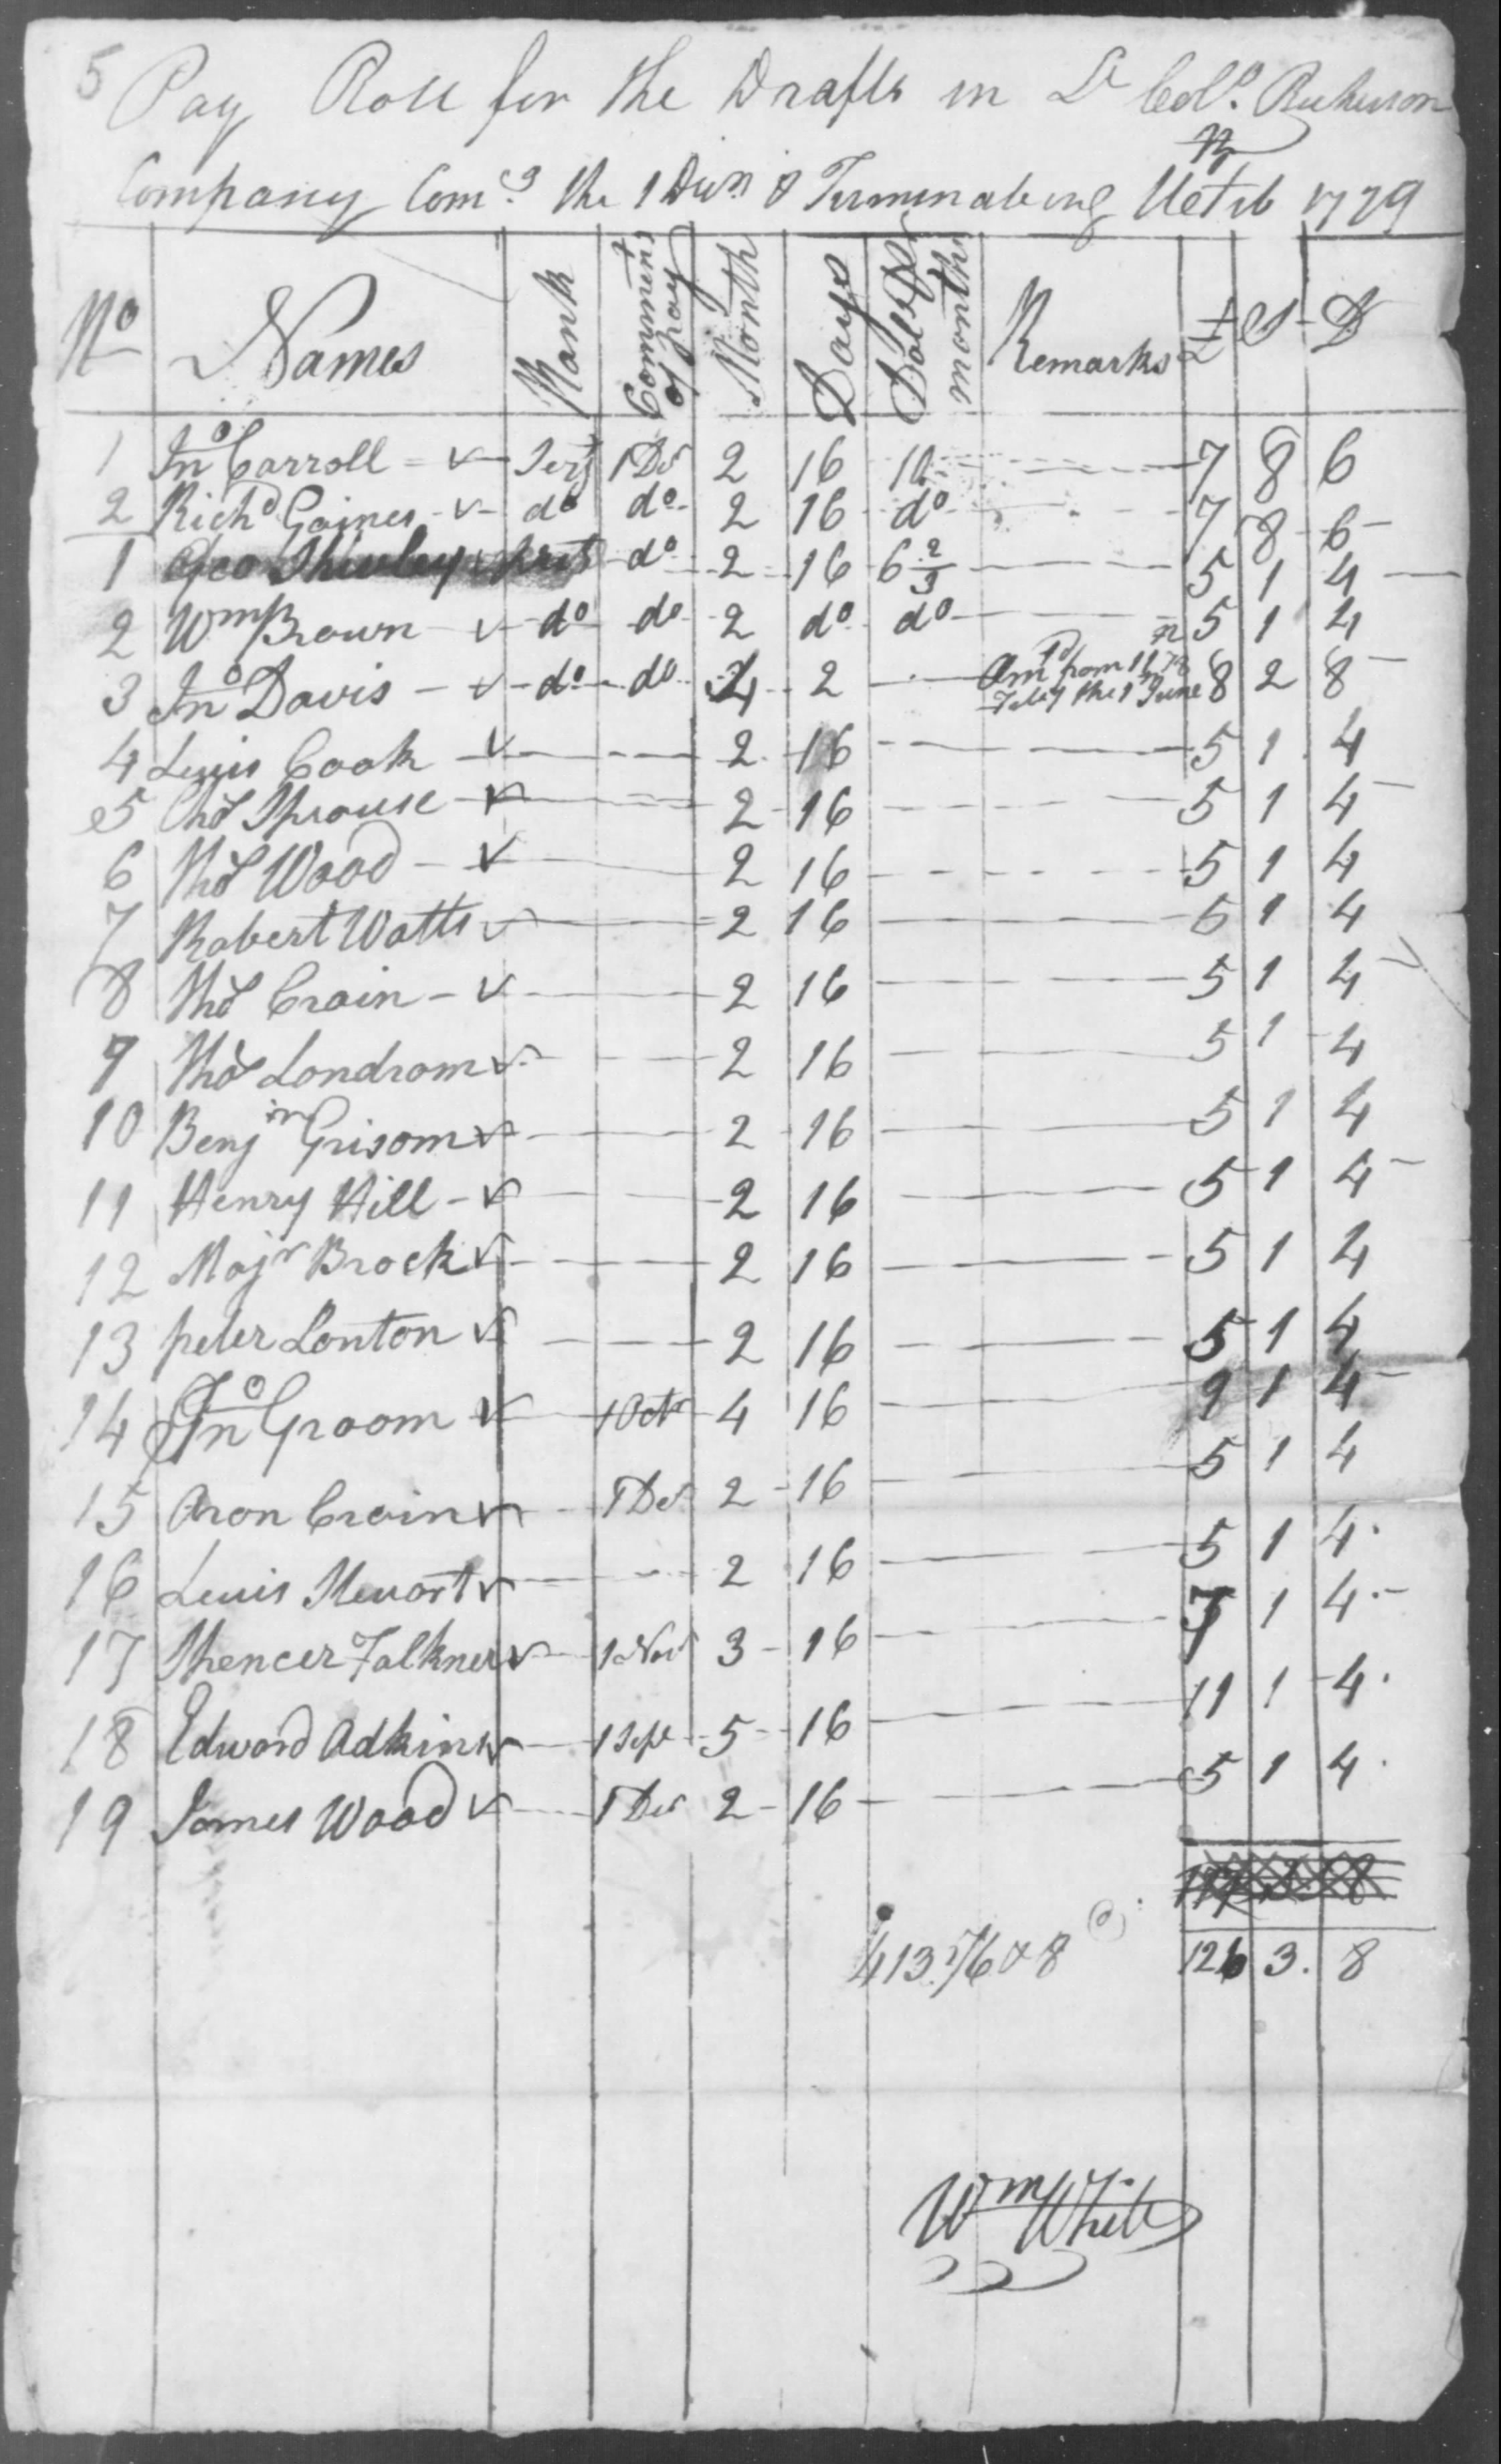 5 Pay Roll for the Drafts in Lt Colo. Richeson
Company Comg. the 1 Decr & Terminating 16 Feb 1779
No Names Rank Commnt of pay Month Days Dolls pr month Remarks £ S D
1 Jno Carroll Serj 1 Der 2 16 10 7 8 6
2 Richd Gaines do do 2 16 do 7 8 6
1 Geo Shurley privt do 2 16 6 2/3 5 1 4
2 Wm Brown do do 2 do do 5 1 4
3 Jno Davis do do 4 2 8 2 8
4 Lewis Cook 2 16 5 1 4
5 Thos Sprouse 2 16 5 1 4
6 Thos Wood 2 16 5 1 4
7 Robert Watts 2 16 5 1 4
8 Thos Crain 2 16 5 1 4
9 Thos Londrom 2 16 5 1 4
10 Benjin Grisom 2 16 5 1 4
11 Henry Hill 2 16 5 1 4
12 Majr Brock 2 16 5 1 4
13 peter Lonton 2 16 5 1 4
14 Jno Groom 1 Octr 4 16 9 1 4
15 Aron Crain 1 Der 2 16 5 1 4
16 Lewis Stewart 2 16 5 1 4
17 Spencer Falkner 1 Nov 3 16 7 1 4
18 Edward Adkins 1 Sept 5 16 11 1 4
19 James Wood 1 Der 2 16 5 1 4
126 3. 8
Wm White